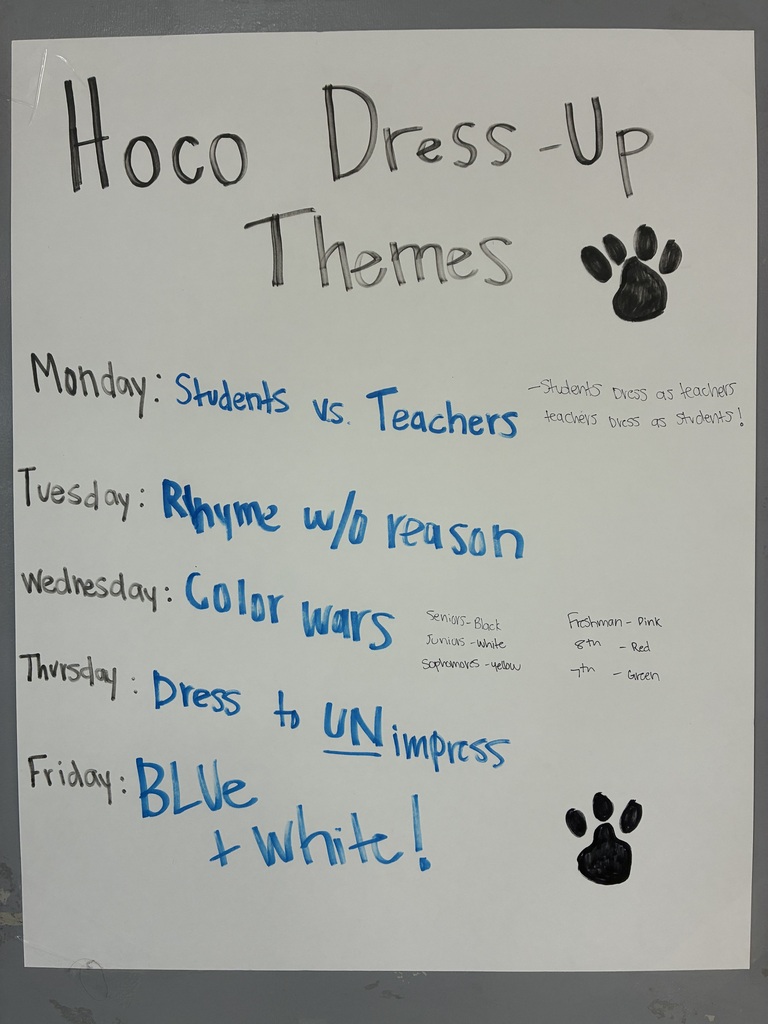 Hoco Dress-Up
Themes
Monday: Students vs. Teachers
-Students Dress as teachers
teachers Dress as Students!
Tuesday: Rhyme w/o reason
Wednesday: Color wars
Seniors-Black
Juniors-White
Sophomores-yellow
Freshman-Pink
8th-Red
7th-Green
Thursday: Dress to UNimpress
Friday: BLUe
+ white!